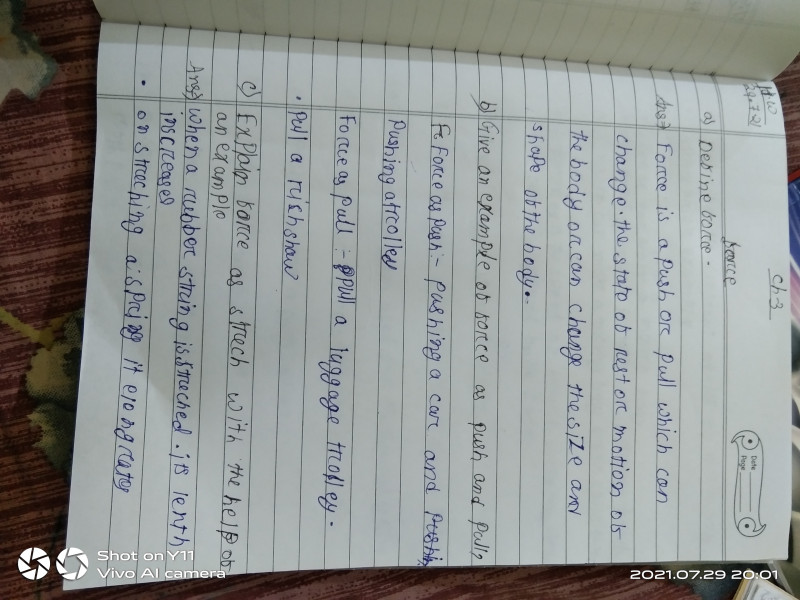 H.W
29.7.21
Ch-3
Force
Date
Page
a) Define force.
Ans) Force is a push or pull which can
change. the state of rest or motion of
the body or can change the size and
shape of the body..
b) Give an example of force as push and pull?
Force as push:- pushing a car and
Pushing a trolley
Force as pull :- pull a luggage trolley.
. Pull a rickshaw
c) Explain force as strech with the help of
an example
Ans) When a rubber string is streched. its lenth
inscreases
. on streching a spring it elongrates
Shot on Y11
Vivo AI camera
2021.07.29 20:01